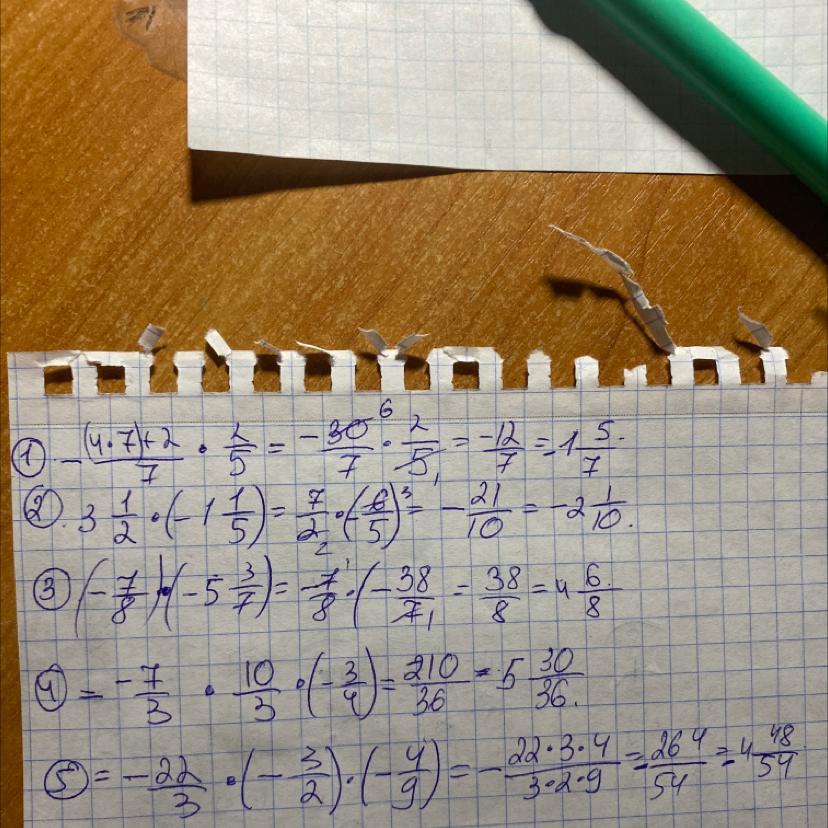 ① -(4·7)+2/7 · 2/5 = -30/7 6 · 2/5 1 = -12/7 = -1 5/7.
②. 3 1/2 · (-1 1/5) = 7/2 2 · (-6/5) 3 = -21/10 = -2 1/10.
③ (-7/8) · (-5 3/7) = -7/8 1 · (-38/7 1 = 38/8 = 4 6/8
④ = -7/3 · 10/3 · (-3/4) = 210/36 = 5 30/36.
⑤ = -22/3 · (-3/2) · (-4/9) = -22·3·4/3·2·9 = -264/54 = -4 48/54